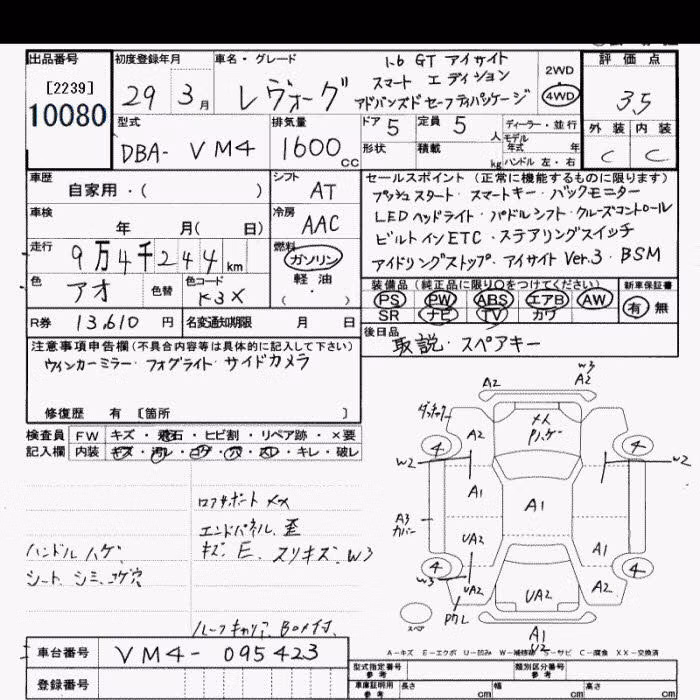 出品番号 初度登録年月 車名・グレード 評価点
[2239]
10080
29 3月 レヴォーグ
1.6 GT アイサイト
スマート エディション
アドバンスドセーフティパッケージ
2WD
4WD
3.5
型式 DBA- VM4
排気量 1600cc
ドア 5 定員 5人
形状 積載 kg
ディーラー・並行
モデル年式 年
ハンドル 左・右
外装 内装
C C
車歴 自家用・( )
シフト AT
車検 年 月( 日)
冷房 AAC
走行 9万4千244km
燃料 ガソリン
軽油
( )
色 アオ 色替 色コード K3X
R券 13,610円 名変通知期限 月 日
セールスポイント(正常に機能するものに限ります)
プッシュスタート・スマートキー・バックモニター
LEDヘッドライト・パドルシフト・クルーズコントロール
ビルトインETC・ステアリングスイッチ
アイドリングストップ・アイサイトVer.3・BSM
装備品(純正品に限り○をつけてください) 新車保証書
PS PW ABS エアB AW
SR ナビ TV カワ
有 無
後日品 取説・スペアキー
注意事項申告欄(不具合内容等は具体的に記入して下さい)
ウィンカーミラー・フォグライト・サイドカメラ
修復歴 有 [箇所 ]
検査員 FW キズ・飛石・ヒビ割・リペア跡・×要
記入欄 内装 キズ・汚レ・コゲ・穴・スレ・キレ・破レ
ハンドルハゲ
シート、シミ、コゲ穴
エンドパネル、歪
キズ、E、スリキズ、W3
ルーフキャリア、BOX付、
A2 W3
A2
A2
4 4
W2 W2
A1
A1
A3
カバー
UA2
A1
4 4
W3 UA2
UA2
A2
スペア
A1
U2
A-キズ E-エクボ U-凹み W-補修跡 S-サビ C-腐食 XX-交換済
車台番号 VM4-095423
登録番号
型式指定番号 参考 類別区分番号 参考
車庫証明用 参考 長さ cm 幅 cm 高さ cm